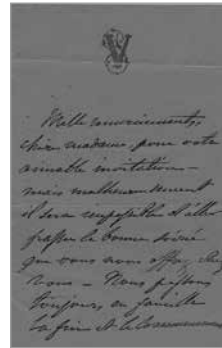 V
Mille remerciements,
chère madame, pour votre
aimable invitation –
mais malheureusement
il sera impossible d'aller
passer la bonne soirée
que vous nous offrez chez
vous – Nous passons
toujours, en famille
la fin et le commencement